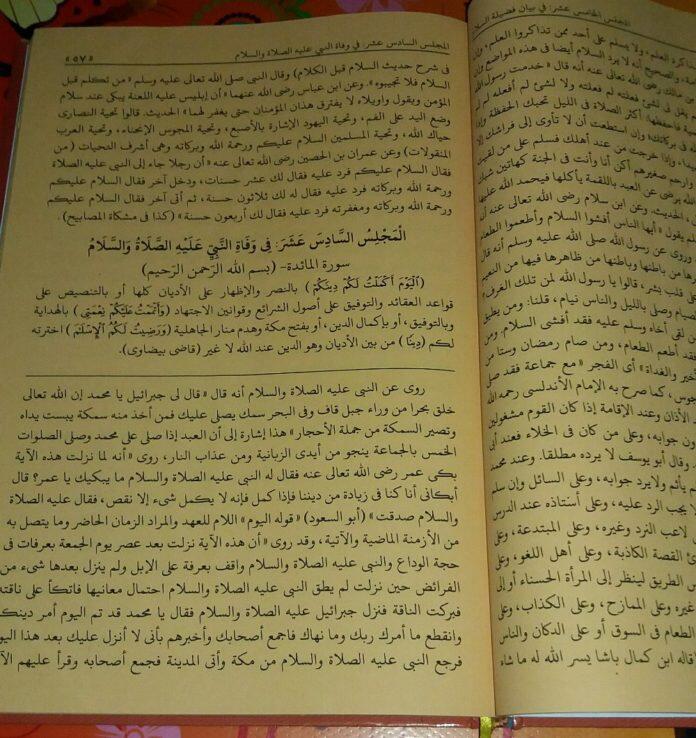 المجلس الخامس عشر: في بيان فضيلة السلام
ذاكرة العلم، ولا يسلم على أحد ممن تذاكروا العلم، وإن
والصحيح أنه لا يرد السلام أيضا فى هذه المواضع
مالك رضى الله عنه أنه قال « خدمت رسول الله
لى فى شىء فعلته لم فعلته ولا لشئ لم أفعله لم لم
فاحفظها: أكثر الصلاة فى الليل تحبك الحفظة وإذا
فى بركاتك؛ وإن استطعت أن لا تأوى إلى فراشك إلا
وإذا خرجت من عند أهلك فسلم على من لقيت
وارحم صغيرهم أكن أنا وأنت فى الجنة كهاتين
يرضى عن العبد باللقمة يأكلها فيحمد الله عليها
الحديث. وعن ابن سلام رضى الله تعالى عنه أنه
يقول « أيها الناس أفشوا السلام وأطعموا الطعام
وروى عن رسول الله صلى الله عليه وسلم أنه قال
من باطنها وباطنها من ظاهرها فيها من النعيم
قلب بشر، قالوا يا رسول الله لمن تلك الغرف
الصيام وصلى بالليل والناس نيام، قلنا: ومن يطيق
من لقى أخاه وسلم عليه فقد أفشى السلام، ومن
فقد أطعم الطعام، ومن صام رمضان وستا من
والغداة » أى الفجر « مع جماعة فقد صلى
كما صرح به الإمام الأندلسى رحمه الله
الأذان وعند الإقامة إذا كان القوم مشغولين
جوابه، وعلى من كان فى الخلاء فعند أبى
وقال أبو يوسف لا يرده مطلقا. وعند محمد
يأثم ولا يرد جوابه، وعلى السائل وإن سلم
لا يجب الرد عليه، وعلى أستاذه عند الدرس
لاعب النرد وغيره، وعلى المبتدعة، وعلى
القصة الكاذبة، وعلى أهل اللغو، وعلى
الطريق لينظر إلى المرأة الحسناء أو إلى
غيره وعلى الممازح، وعلى الكذاب، وعلى
الطعام فى السوق أو على الدكان والناس
قاله ابن كمال باشا يسر الله له ما شاء
المجلس السادس عشر: في وفاة النبي عليه الصلاة والسلام
«٥٧»
فى شرح حديث السلام قبل الكلام) وقال النبى صلى الله تعالى عليه وسلم « من تكلم قبل
السلام فلا تجيبوه ». وعن ابن عباس رضى الله عنهما « أن إبليس عليه اللعنة يبكى عند سلام
المؤمن ويقول واويلاه لا يفترق هذان المؤمنان حتى يغفر لهما » الحديث. قالوا تحية النصارى
وضع اليد على الفم، وتحية اليهود الإشارة بالأصبع، وتحية المجوس الإنحناء، وتحية العرب
حياك الله، وتحية المسلمين السلام عليكم ورحمة الله وبركاته وهى أشرف التحيات ( من
المنقولات) وعن عمران بن الحصين رضى الله تعالى عنه « أن رجلا جاء إلى النبى عليه الصلاة
فقال السلام عليكم فرد عليه فقال لك عشر حسنات، ودخل آخر فقال السلام عليكم
ورحمة الله وبركاته فرد عليه فقال له لك ثلاثون حسنة، ثم أتى آخر فقال السلام عليكم
ورحمة الله وبركاته ومغفرته فرد عليه فقال لك أربعون حسنة » (كذا فى مشكاة المصابيح).
الْمَجْلِسُ السَّادِسَ عَشَرَ: فِى وَفَاةِ النَّبِيِّ عَلَيْهِ الصَّلَاةُ وَالسَّلَامُ
سورة المائدة- (بسم الله الرّحمن الرّحيم)
(اَلْيَوْمَ اَكْمَلْتُ لَكُمْ دِينَكُمْ) بالنصر والإظهار على الأديان كلها أو بالتنصيص على
قواعد العقائد والتوفيق على أصول الشرائع وقوانين الاجتهاد (وَاَتْمَمْتُ عَلَيْكُمْ نِعْمَتِى) بالهداية
وبالتوفيق، أو بإكمال الدين، أو بفتح مكة وهدم منار الجاهلية (وَرَضِيتُ لَكُمُ الْاِسْلَامَ) اخترته
لكم (دِينًا) من بين الأديان وهو الدين عند الله لا غير (قاضى بيضاوى).
روى عن النبى عليه الصلاة والسلام أنه قال « قال لى جبرائيل يا محمد إن الله تعالى
خلق بحرا من وراء جبل قاف وفى البحر سمك يصلى عليك فمن أخذ منه سمكة يبست يداه
وتصير السمكة من جملة الأحجار » هذا إشارة إلى أن العبد إذا صلى على محمد وصلى الصلوات
الخمس بالجماعة ينجو من أيدى الزبانية ومن عذاب النار، روى « أنه لما نزلت هذه الآية
بكى عمر رضى الله تعالى عنه فقال له النبى عليه الصلاة والسلام ما يبكيك يا عمر؟ قال
أبكانى أنا كنا فى زيادة من ديننا فإذا كمل فإنه لا يكمل شىء إلا نقص، فقال عليه الصلاة
والسلام صدقت » (أبو السعود) « قوله اليوم » اللام للعهد والمراد الزمان الحاضر وما يتصل به
من الأزمنة الماضية والآتية، وقد روى « أن هذه الآية نزلت بعد عصر يوم الجمعة بعرفات فى
حجة الوداع والنبى عليه الصلاة والسلام واقف بعرفة على الإبل ولم ينزل بعدها شىء من
الفرائض حين نزلت لم يطق النبى عليه الصلاة والسلام احتمال معانيها فاتكأ على ناقته
فبركت الناقة فنزل جبرائيل عليه السلام فقال يا محمد قد تم اليوم أمر دينك
وانقطع ما أمرك ربك وما نهاك فاجمع أصحابك وأخبرهم بأنى لا أنزل عليك بعد هذا اليوم
فرجع النبى عليه الصلاة والسلام من مكة وأتى المدينة فجمع أصحابه وقرأ عليهم الآ